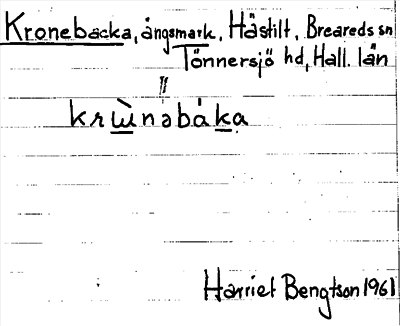 Kronebacka, ängsmark, Hästilt, Breareds sn
Tönnersjö hd, Hall. län
"
krɯ̀nəbàka
Harriet Bengtson 1961